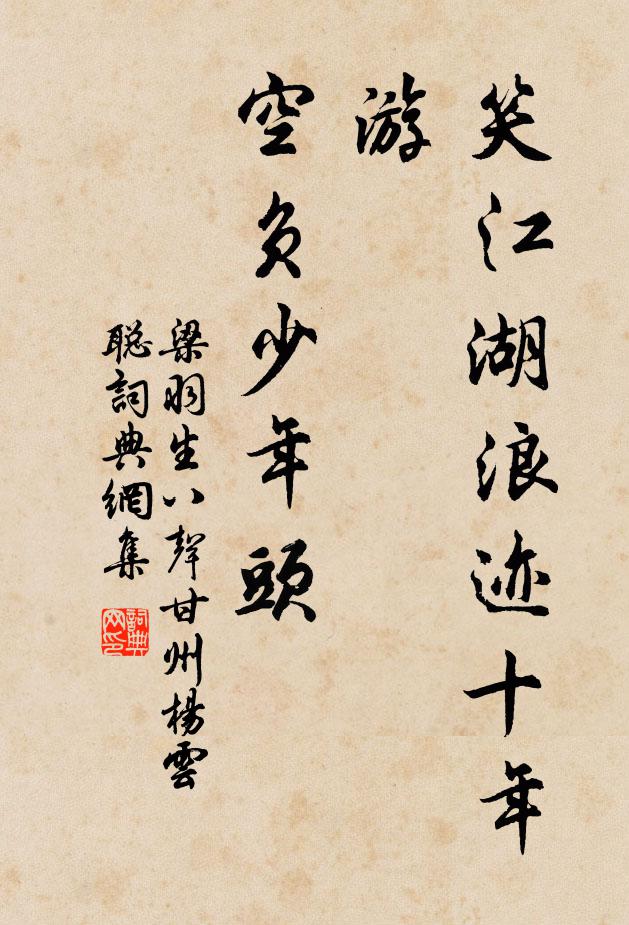 笑江湖浪迹十年
游
空负少年頭
梁羽生八聲甘州楊雲
聪詞典網集
詞典
网印